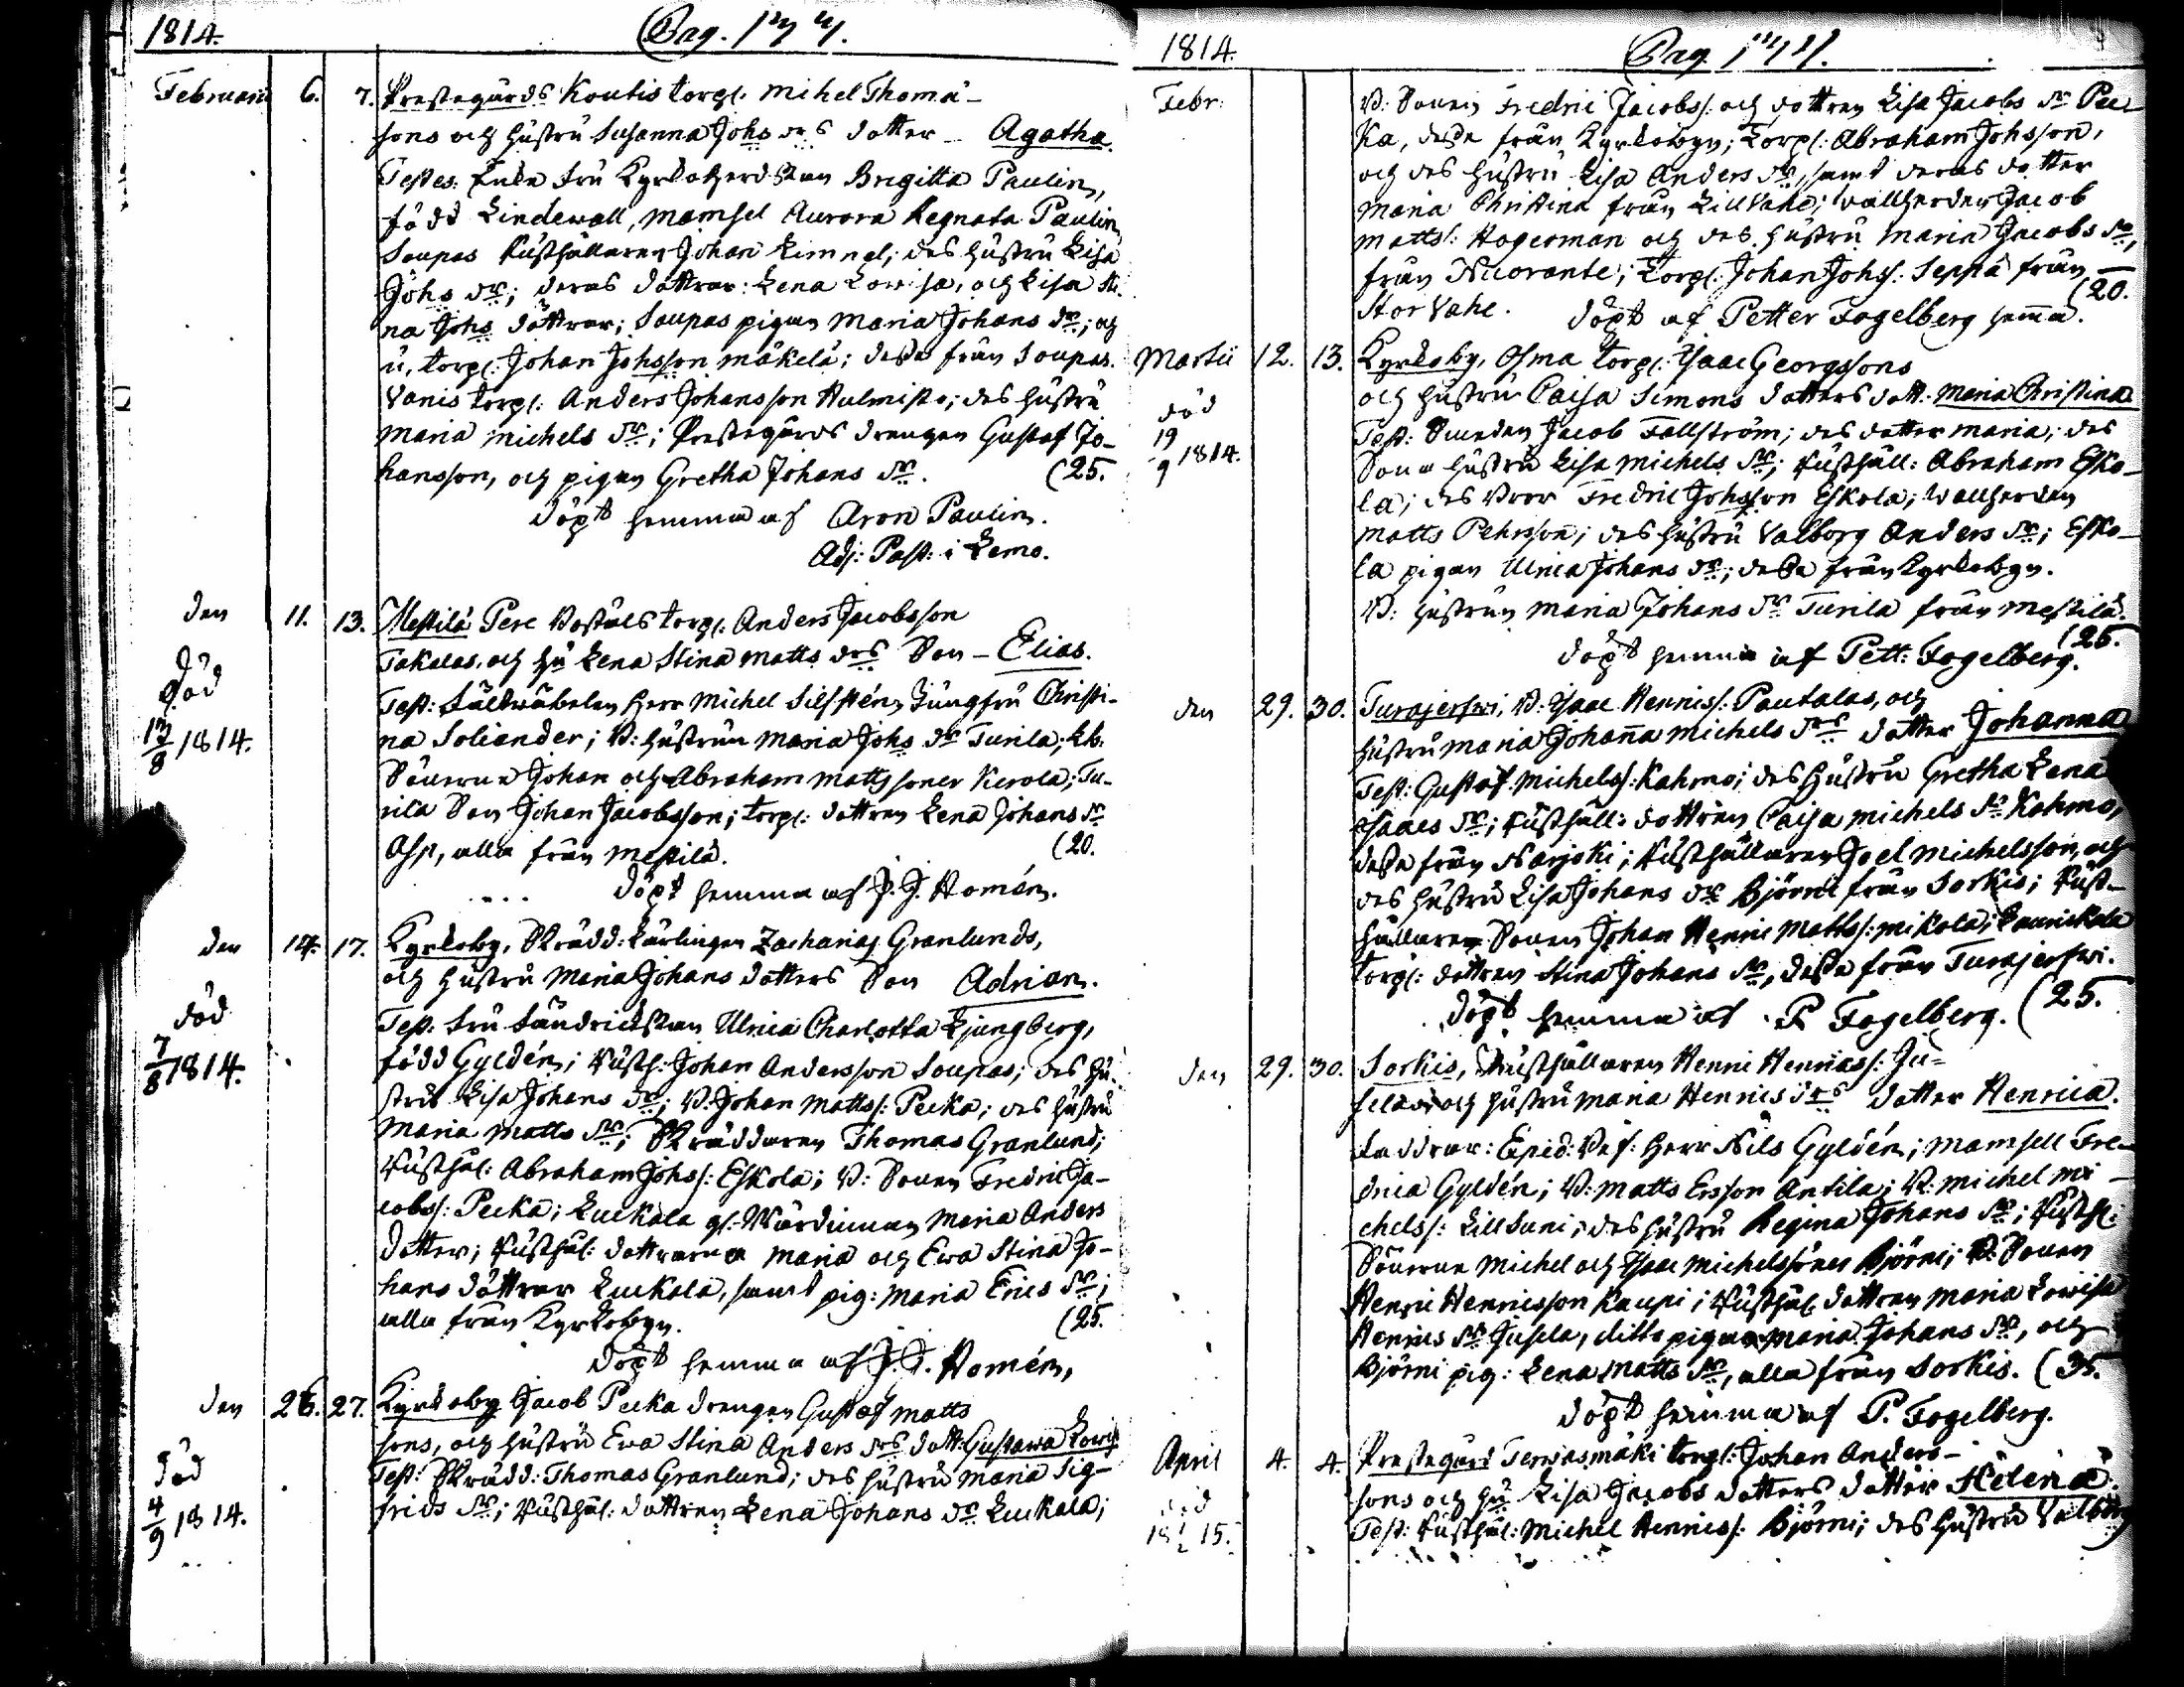 1814.
Pag.
Februarii 6. 7. Prestegårds Koutis torp: Mihel Thomæ-
sons och hustru Susanna Johs drs dotter Agatha.
Testes: Enke Fru Kyrkoherdskan Brigitta Paulin,
född Lindewall, Mamsel Aurora Regnata Paulin,
Soupas Rusthållaren Johan Limnel; des hustru Lisa
Johs dr; deras döttrar: Lena Lowisa, och Lisa Sti-
na Johs döttrar; Soupas pigan Maria Johans dr; och
u, torp: Johan Johsson Mäkelä; desse från Soupas.
Vanis torp: Anders Johansson Hulmisto; des hustru
Maria Michels dr; Prestegårds drengen Gustaf Jo-
hansson, och pigan Gretha Johans dr. (25.
döpt hemma af Aron Paulin.
Adj: Past: i Lemo.
den 11. 13. Mestilä Pere Bostäls torp: Anders Jacobsson
Takalas, och hu Lena Stina Matts drs Son - Elias.
död
17/8 1814.
Test: Fältväbelen Herr Michel Silfstén, Jungfru Christi-
na Soliander; B: hustrun Maria Johs dr Turila; Lb:
Sönerne Johan och Abraham Mattssoner Kerola; Tu-
rila Son Johan Jacobsson; torp: dottren Lena Johans dr
Asp, alla från Mestilä. (20.
döpt hemma af J. J. Homén.
den 14. 17. Kyrkoby, Skrädd: Lärlingen Zacharias Granlunds,
och hustru Maria Johans dotters Son Adrian.
död
7/8 1814.
Test: Fru Fändrickskan Ulrica Charlotta Ljungberg,
född Gyldén; Rusth: Johan Andersson Soupas; des hu-
stru Lisa Johans dr; B: Johan Matts: Pecka; des hustru
Maria Matts dr; Skräddaren Thomas Granlund;
Rusthål: Abraham Johs: Eskola; B: Sonen Fredric Ja-
cobs: Pecka; Luckala gl: Wärdinnan Maria Anders
dotter; Rusthål: dottrarna Maria och Ewa Stina Jo-
hans döttrar Luckala, samt pig: Maria Erics dr;
alla från Kyrkobyn. (25.
döpt hemma af J. J. Homén,
den 26. 27. Kyrkoby Jacob Pecka drengen Gustaf Matts
sons, och hustru Ewa Stina Anders drs dott: Gustawa Lowis
död
4/9 1814.
Test: Skrädd: Thomas Granlund; des hustru Maria Sig-
frids dr; Rusthål: dottren Lena Johans dr Luckala;
1814.
Pag.
Febr: B: Sonen Fredric Jacobs: och dottren Lisa Jacobs dr Pec-
ka, desse från Kyrkobyn; torp: Abraham Johsson,
och des hustru Lisa Anders dr, samt deras dotter
Maria Christina från Lillvahe; Wallherden Jacob
Matts: Hagerman och des hustru Maria Jacobs dr,
från Nuorante; torp: Johan Johs: Seppä från
Storvahe. (20.
döpt af Petter Fogelberg hemma.
Martii 12. 13. Kyrkoby, Osma torp: Isaac Georgssons
och hustru Caisa Simons dotters dott. Maria Christina
död
19/9 1814.
Test: Smeden Jacob Fallström; des dotter Maria; des
Sone hustru Lisa Michels dr; Rusthåll: Abraham Esko-
la; des Bror Fredric Johsson Eskola; Wallherden
Matts Pehrsson; des hustru Valborg Anders dr; Esko-
la pigan Ulrica Johans dr; desse från Kyrkobyn.
B: hustrun Maria Johans dr Turila från Mestilä.
(25.
döpt hemma af Pett: Fogelberg.
den 29. 30. Turajerfwi, B: Isaac Henriss: Pautalas, och
hustru Maria Johanna Michels drs dotter Johanna
Test: Gustaf Michels: Kahmo; des hustru Gretha Lena
Isaacs dr; Rusthåll: dottren Caisa Michels dr Kahmo,
desse från Narjoki; Rusthållaren Joel Michelsson, och
des hustru Lisa Johans dr Björni från Sorkis; Rust-
hållaren Sonen Johan Henric Matts: Mikola; Launikala
torp: dottren Stina Johans dr, desse från Turajerfwi.
döpt hemma af P. Fogelberg. (25.
den 29. 30. Sorkis, Rusthållaren Henric Henricss: Ju-
selas och hustru Maria Henrics drs dotter Henrica.
Faddrar: Exped: Bef: Herr Nils Gyldén; Mamsell Fre-
drica Gyldén; B: Matts Ersson Antila; B: Michel Mi-
chels: Lillsuni; des hustru Regina Johans dr; Rusthl:
Sönerne Michel och Isaac Michelssöner Björni; B: Sonen
Henric Henricsson Kaupi; Rusthål: dottren Maria Lowisa
Henrics dr Jusela, ditto pigan Maria Johans dr, och
Björni pig: Lena Matts dr, alla från Sorkis. (35.
döpt hemma af P. Fogelberg.
April 4. 4. Prestegård Terrjasmäki torp: Johan Anders-
sons och hu Lisa Jacobs dotters dotter Helena.
död
15.
Test: Rusthål: Michel Henrics: Björni; des hustru Valborg